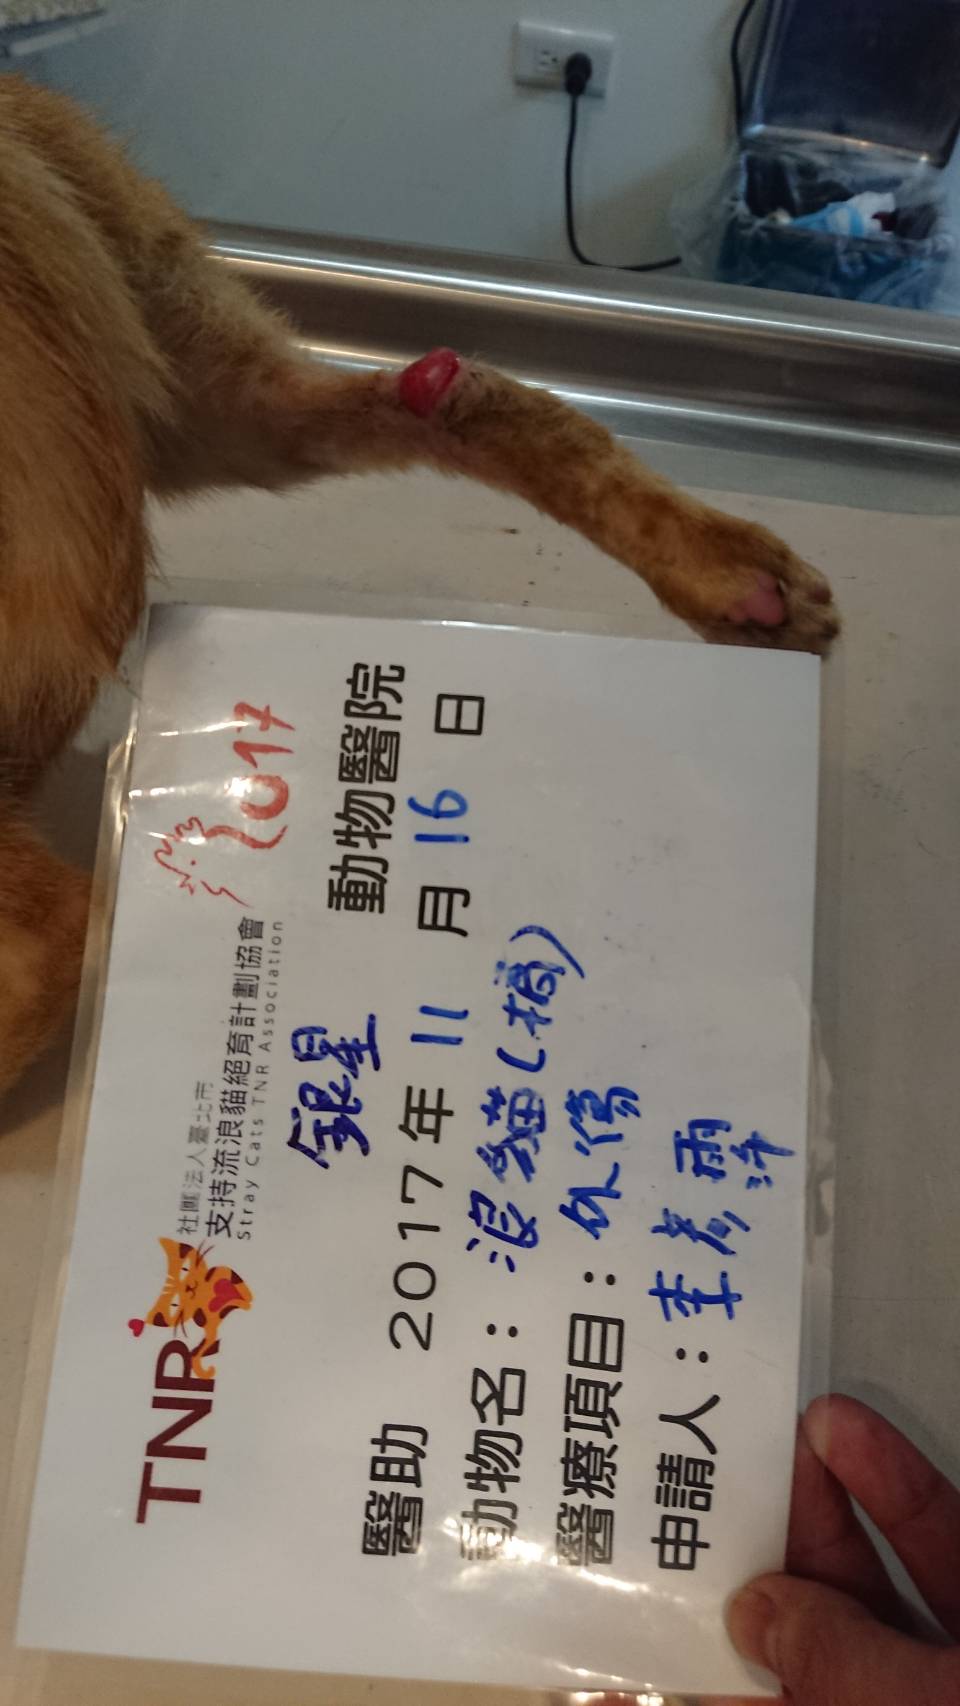 TNR
社團法人臺北市
支持流浪貓絕育計劃協會
Stray Cats TNR Association
2017
銀星 動物醫院
醫助 2017年11月16日
動物名：浪貓(橘)
醫療項目：外傷
申請人：李彥萍